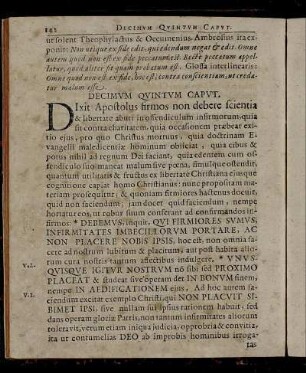 142 DECIMVM QVINTVM CAPVT.
ut solent Theophylactus & Oecumenius. Ambrosius ita ex-
ponit: Non utique ex fide edit, qui edendum negat & edit. Omne
autem quod non est ex fide peccatum est. Recte peccatum appel-
latur, quod aliter fit quam probatum est. Glossa interlinearis:
Omne quod non est ex fide, hoc est, contra conscientiam, ut creda-
tur malum esse.
DECIMVM QVINTVM CAPVT.
DIxit Apostolus firmos non debere scientia
& libertate abuti in offendiculum infirmorum, quia
sit contra charitatem, quia occasionem prebeat ex-
tio ejus, pro quo Christus mortuus, quia doctrinam E-
vangelii maledicentiæ hominum obiiciat, quia cibus &
potus nihil ad regnum Dei faciant, quia edentem cum of-
fendiculo sui maneat malum sive poena, simulque ostendit,
quantum utilitatis & fructus ex libertate Christiana ejusque
cognitione capiat homo Christianus: nunc propositam ma-
teriam prosequitur, & quoniam firmiores hactenus docuit,
quid non faciendum, jam docet quid faciendum, nempe
hortatur eos, ut robor suum conferant ad confirmandos in-
firmos. * DEBEMVS, inquit, QVI FIRMIORES SVMVS,
INFIRMITATES IMBECILLORVM PORTARE, AC
NON PLACERE NOBIS IPSIS, hoc est, non omnia fa-
cere ad nostrum lubitum & placitum, aut post habita alio-
rum cura nostris tantum affectibus indulgere. * VNVS-
V.2. QVISQVE IGITVR NOSTRVM non sibi sed PROXIMO
PLACEAT & studeat sive operam det IN BONVM suum,
nempe IN AEDIFICATIONEM ejus. Ad hoc autem fa-
V.3. ciendum excitat exemplo Christi, qui NON PLACVIT SI-
BIMET IPSI, sive nullam sui ipsius rationem habuit, sed
dans operam gloriæ Patris, non tantum infirmitates aliorum
toleravit, verum etiam iniqua judicia, opprobria & convitia,
ita ut contumelias DEO ab improbis hominibus irroga-
tas